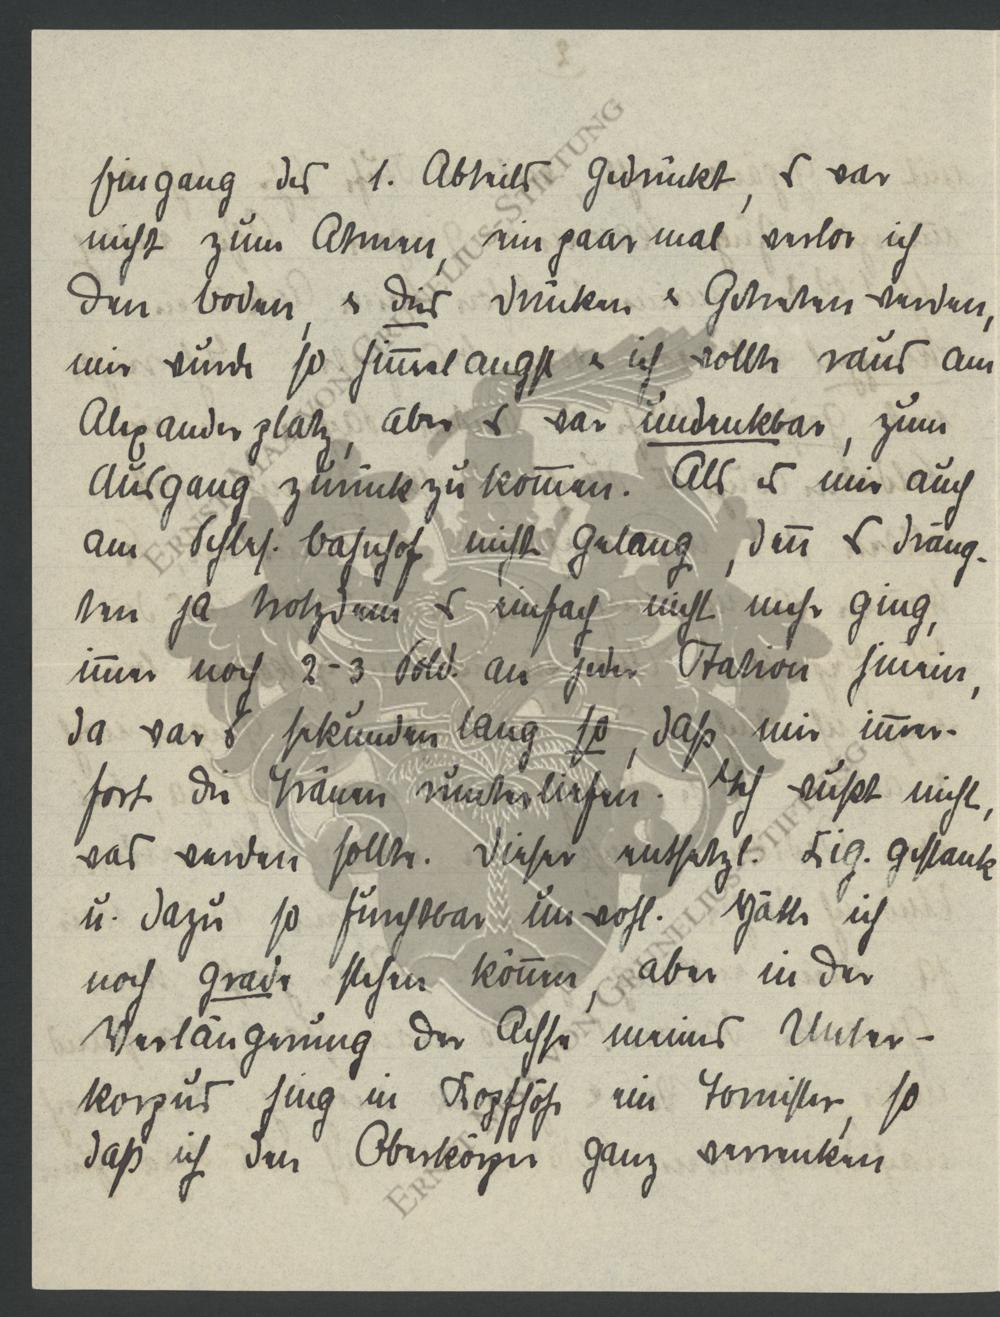 2
Eingang des 1. Abteils gedrückt, es war
nicht zum Atmen, ein paar mal verlor ich
den Boden, & dies Drücken & Getreten werden,
mir wurde so him̅elangst & ich wollte raus am
Alexanderplatz, aber es war undenkbar, zum
Ausgang zurückzukom̅en. Als es mir auch
am Schles. Bahnhof nicht gelang, den̅ es dräng-
ten ja trotzdem es einfach nicht mehr ging,
im̅er noch 2-3 Sold. an jeder Station hinein,
da war es sekundenlang so, daß mir im̅er-
fort die Tränen runterliefen. Ich wußt nicht,
was werden sollte. Dieser entsetzl. Zig. gestank
u. dazu so furchtbar unwohl. Hätte ich
noch grade stehen kön̅en, aber in der
Verlängerung der Achse meines Unter-
korpus hing in Kopfhöhe ein Tornister, so
daß ich den Oberkörper ganz verrenken
ERNSTAMARION VON GRUNELIUS-STIFTUNG
ERNST VON GRUNELIUS-STIFTUNG